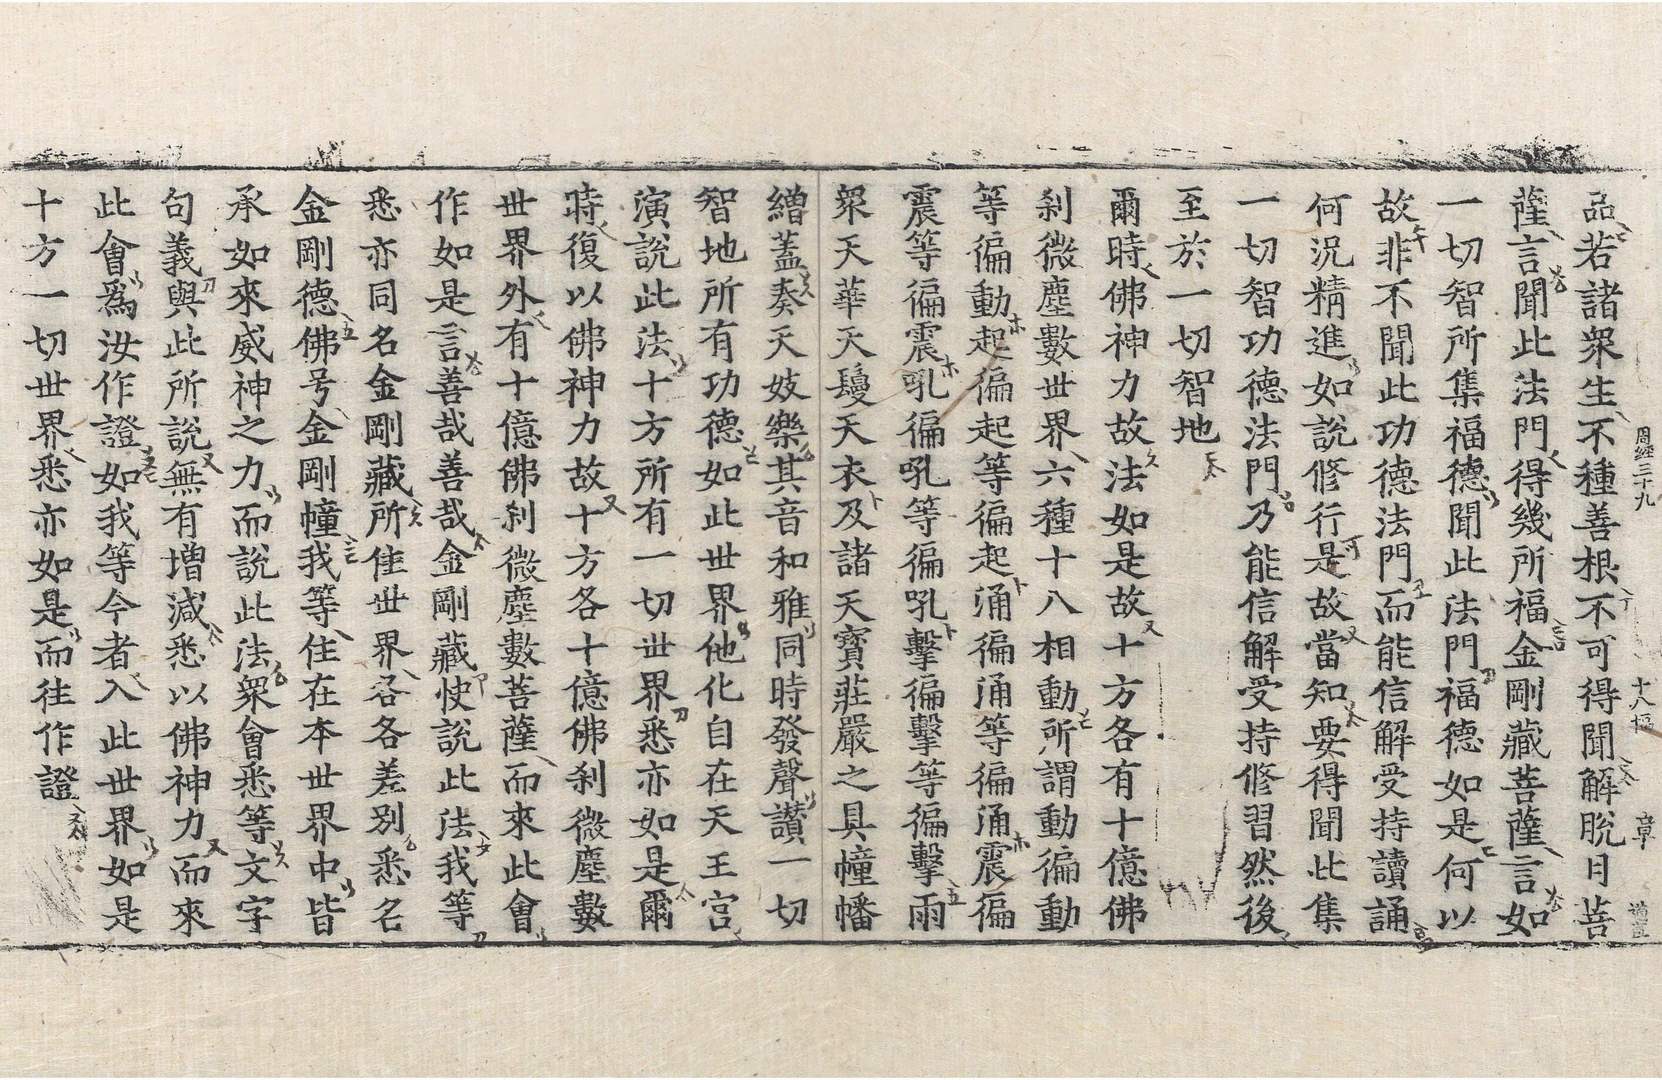 品若諸衆生不種善根不可得聞解脫月菩
薩言聞此法門得幾所福金剛藏菩薩言如
一切智所集福德聞此法門福德如是何以
故非不聞此功德法門而能信解受持讀誦
何況精進如說修行是故當知要得聞此集
一切智功德法門乃能信解受持修習然後
至於一切智地
爾時佛神力故法如是故十方各有十億佛
刹微塵數世界六種十八相動所謂動徧動
等徧動起徧起等徧起涌徧涌等徧涌震徧
震等徧震吼徧吼等徧吼擊徧擊等徧擊雨
衆天華天鬘天衣及諸天寶莊嚴之具幢幡
繒蓋奏天妓樂其音和雅同時發聲讃一切
智地所有功德如此世界他化自在天王宮
演說此法十方所有一切世界悉亦如是爾
時復以佛神力故十方各十億佛刹微塵數
世界外有十億佛刹微塵數菩薩而來此會
作如是言善哉善哉金剛藏快說此法我等
悉亦同名金剛藏所住世界各各差别悉名
金剛德佛号金剛幢我等住在本世界中皆
承如來威神之力而說此法衆會悉等文字
句義與此所說無有增減悉以佛神力而來
此會爲汝作證如我等今者入此世界如是
十方一切世界悉亦如是而往作證
周經三十九
十八幅
章